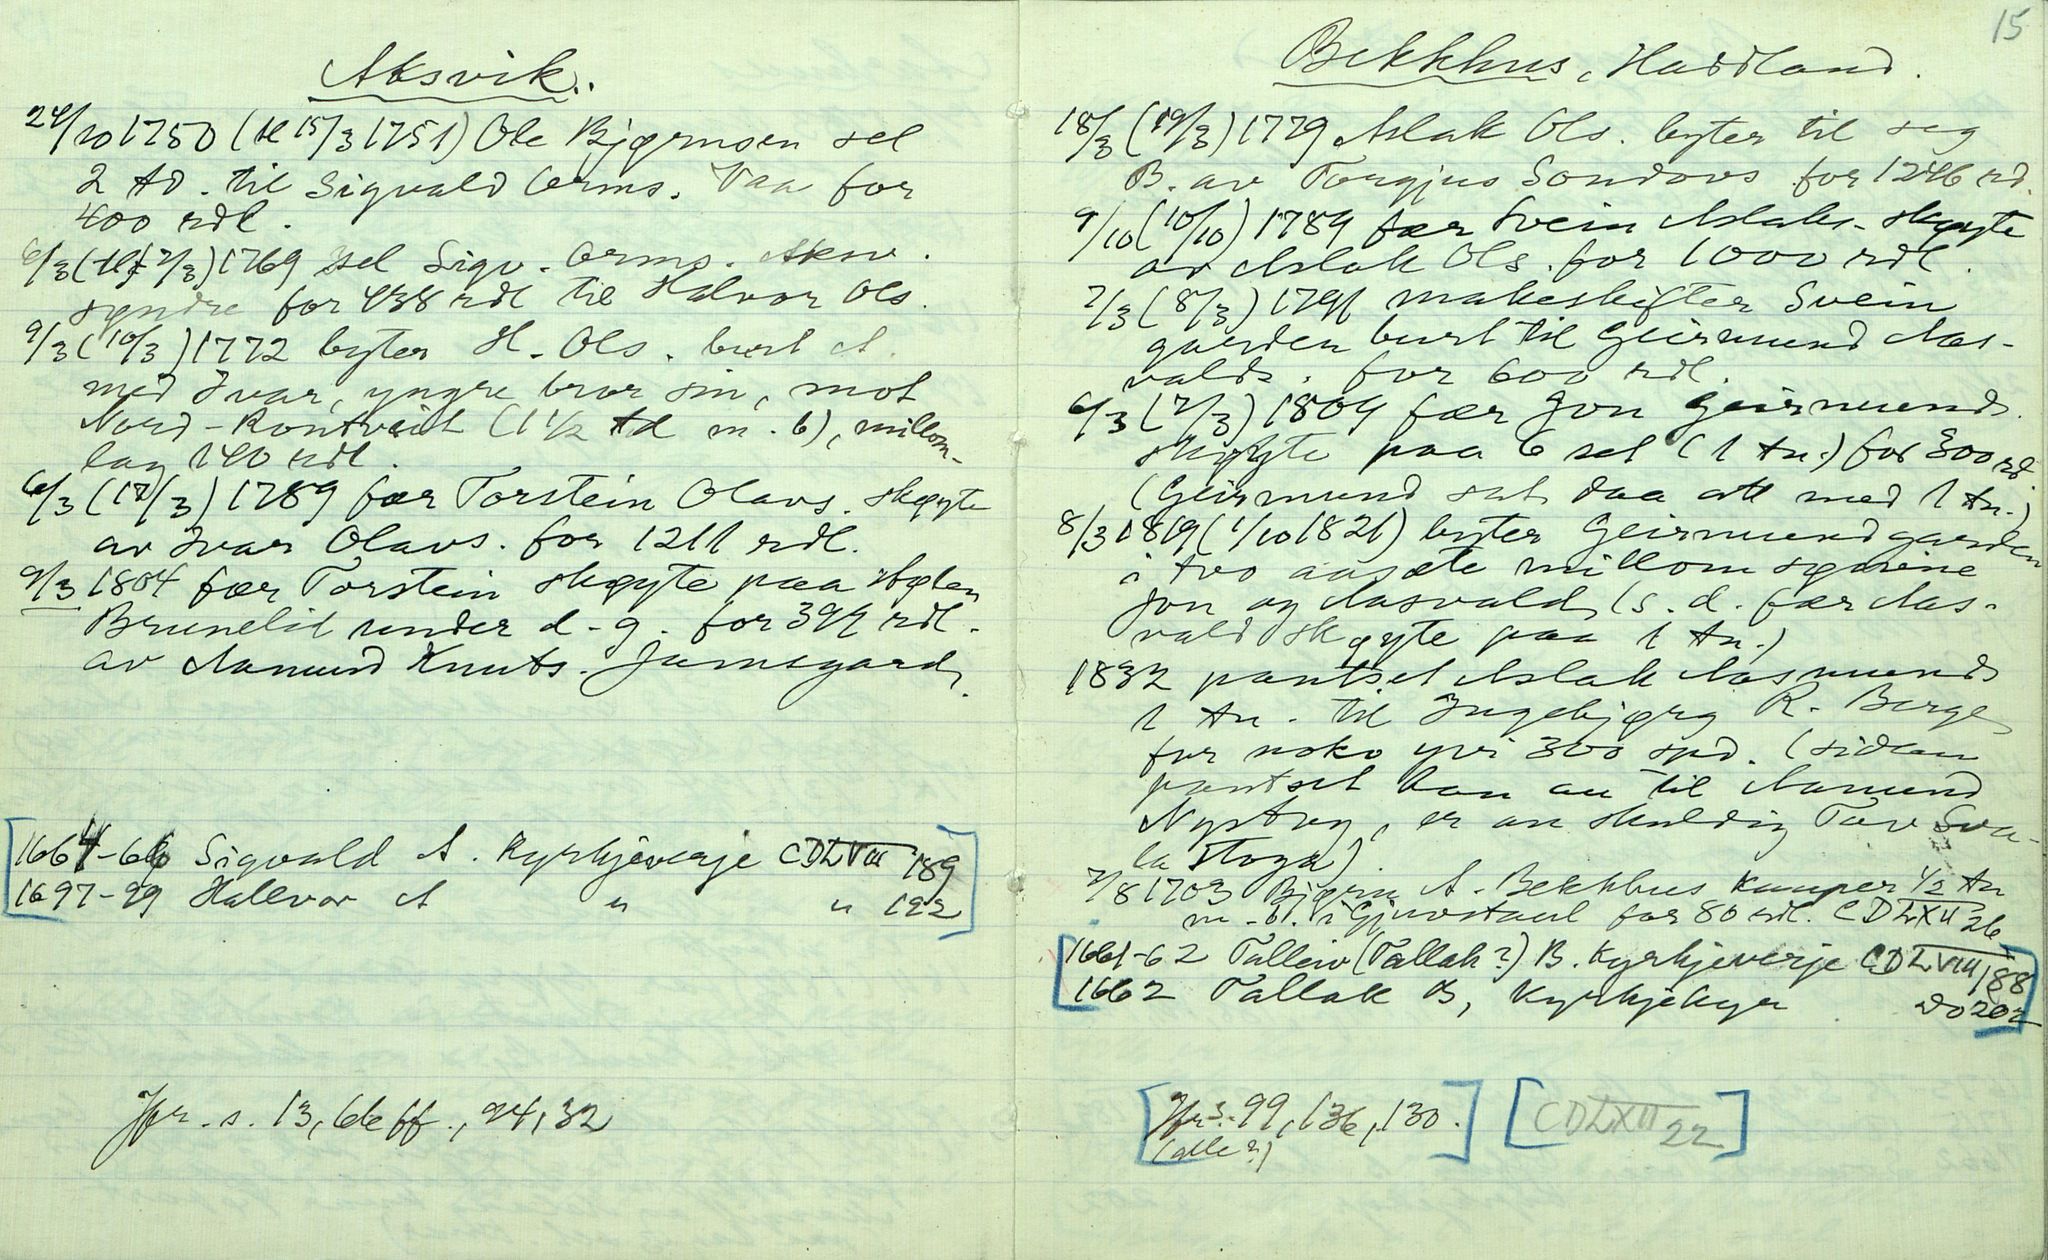 Aksvik.
24/10 1750 (tl 15/3 1751) Ole Bjørnsen sel
2 td. til Sigvald Orms. Vaa for
400 rdl.
6/3 (tl 7/3) 1769 sel Sigv. Orms. Aksv.
syndre for 438 rdl til Halvor Ols.
9/3 (10/3) 1772 byter H. Ols. burt A.
med Ivar, yngre bror sin, mot
Nord-Rontveit (1 1/2 td m. b), millom-
lag 140 rdl.
6/3 (17/3) 1789 fær Torstein Olavs. skøyte
av Ivar Olavs. for 1211 rdl.
9/3 1804 fær Torstein skøyte paa
Brunelid under d. g. for 399 rdl.
av Aamund Knuts. Jamsgard.
[1664-66 Sigvald A. Kyrkjeverje CDLVIII 189
1697-99 Hallvor A " " 192]
Jfr. s. 13, 66 ff., 94, 32
15
Bekkhus, Haddland.
18/3 (19/3) 1779 Aslak Ols. byter til seg
B. av Torgjus Sondovs for 1246 rd.
9/10 (10/10) 1789 fær Svein Aslaks. skøyte
av Aslak Ols. for 1000 rdl.
7/3 (8/3) 1791 makeskifter Svein
garden burt til Geirmund Aas-
valds. for 600 rdl.
6/3 (7/3) 1809 fær Jon Geirmunds.
skøyte paa 6 set (1 tn.) for 300 rd.
(Geirmund sat daa att med 1 tn.)
8/3 1819 (1/10 1821) byter Geirmund garden
i tvo aasæte millom sønine
Jon og Aasvald (s. d. fær Aas-
vald skøyte paa 1 tn.)
1832 pantset Aslak Aasmunds
1 tn. til Ingebjørg R. Berge
for noko yvi 300 spd. (sidan
pantset han au til Aamund
Nystog, er an skuldig Tov Sva-
la stoga)
7/8 1703 Bjørn A. Bekkhus kauper 1/2 tn
m. b. i Gjuvstaul for 80 rdl. CDLXII 26
[1661-62 Talleiv (Tallak?) B. Kyrkjeverje CDLVIII 188
1662 Tallak B, Kyrkjekyr Do 202]
[Jfr s. 99, 136, 130.] [CDLXII 22]
(alle?)